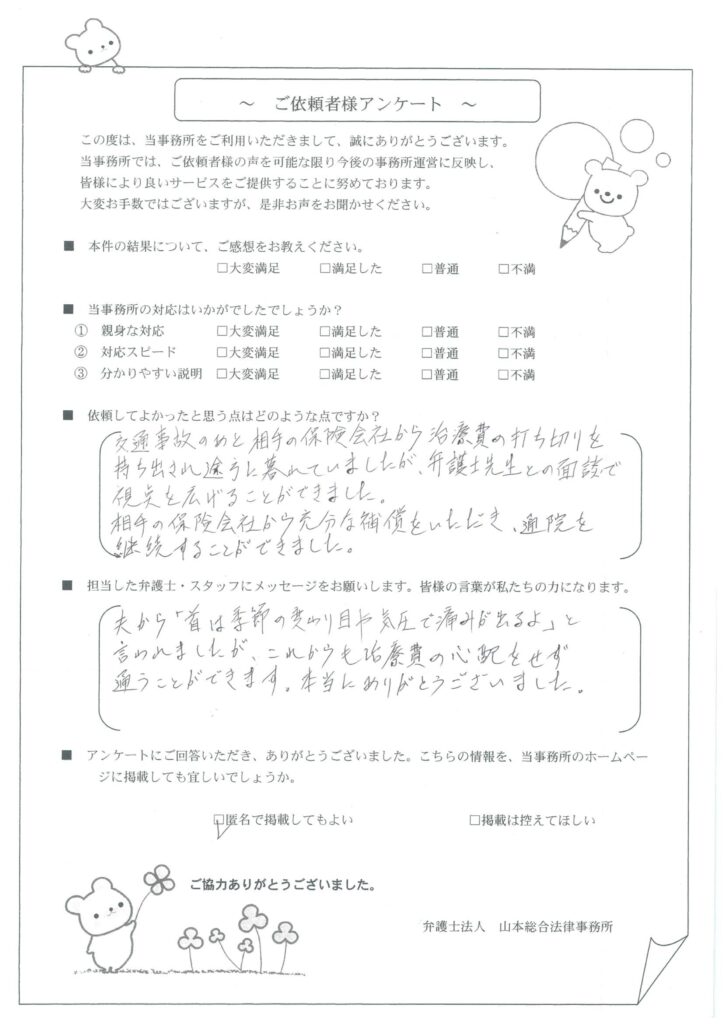 ～ ご依頼者様アンケート ～
この度は、当事務所をご利用いただきまして、誠にありがとうございます。
当事務所では、ご依頼者様の声を可能な限り今後の事務所運営に反映し、
皆様により良いサービスをご提供することに努めております。
大変お手数ではございますが、是非お声をお聞かせください。
■ 本件の結果について、ご感想をお教えください。
□大変満足 □満足した □普通 □不満
■ 当事務所の対応はいかがでしたでしょうか？
① 親身な対応 □大変満足 □満足した □普通 □不満
② 対応スピード □大変満足 □満足した □普通 □不満
③ 分かりやすい説明 □大変満足 □満足した □普通 □不満
■ 依頼してよかったと思う点はどのような点ですか？
交通事故のあと相手の保険会社から治療費の打ち切りを
持ち出され途方に暮れていましたが、弁護士先生との面談で
視点を広げることができました。
相手の保険会社から充分な補償をいただき、通院を
継続することができました。
■ 担当した弁護士・スタッフにメッセージをお願いします。皆様の言葉が私たちの力になります。
夫から「首は季節の変わり目や気圧で痛みが出るよ」と
言われましたが、これからも治療費の心配をせず
通うことができます。本当にありがとうございました。
■ アンケートにご回答いただき、ありがとうございました。こちらの情報を、当事務所のホームペー
ジに掲載しても宜しいでしょうか。
☑匿名で掲載してもよい □掲載は控えてほしい
ご協力ありがとうございました。
弁護士法人 山本総合法律事務所